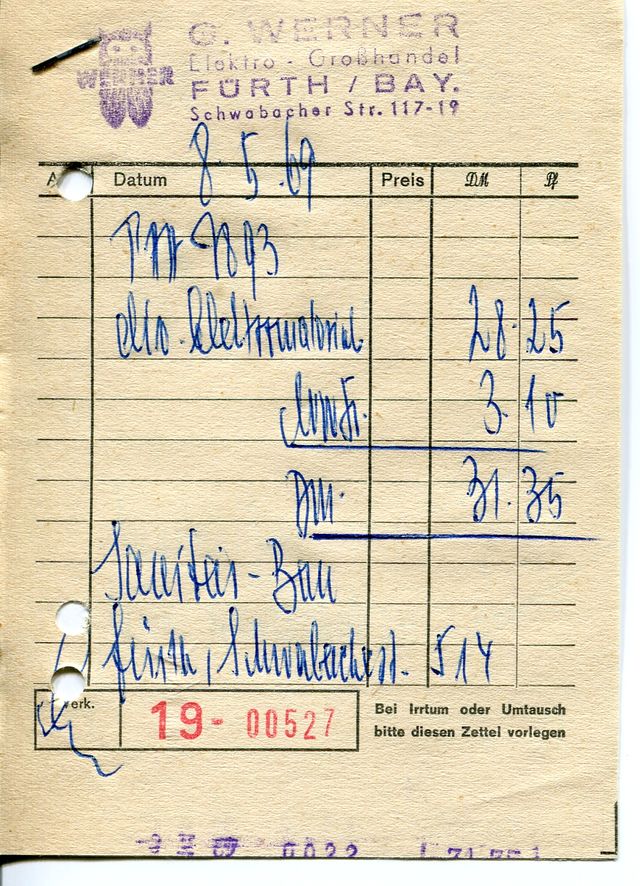 G. WERNER
Elektro - Großhandel
WERNER
FÜRTH / BAY.
Schwabacher Str. 117-19
8. 5. 69
Datum Preis DM Pf
1893
div. Elektromaterial 28. 25
Mwst. 3. 10
DM. 31. 35
Sanitär - Bau
Fürth, Schwabacherst. 514
Verk. 19- 00527
Bei Irrtum oder Umtausch
bitte diesen Zettel vorlegen
0022